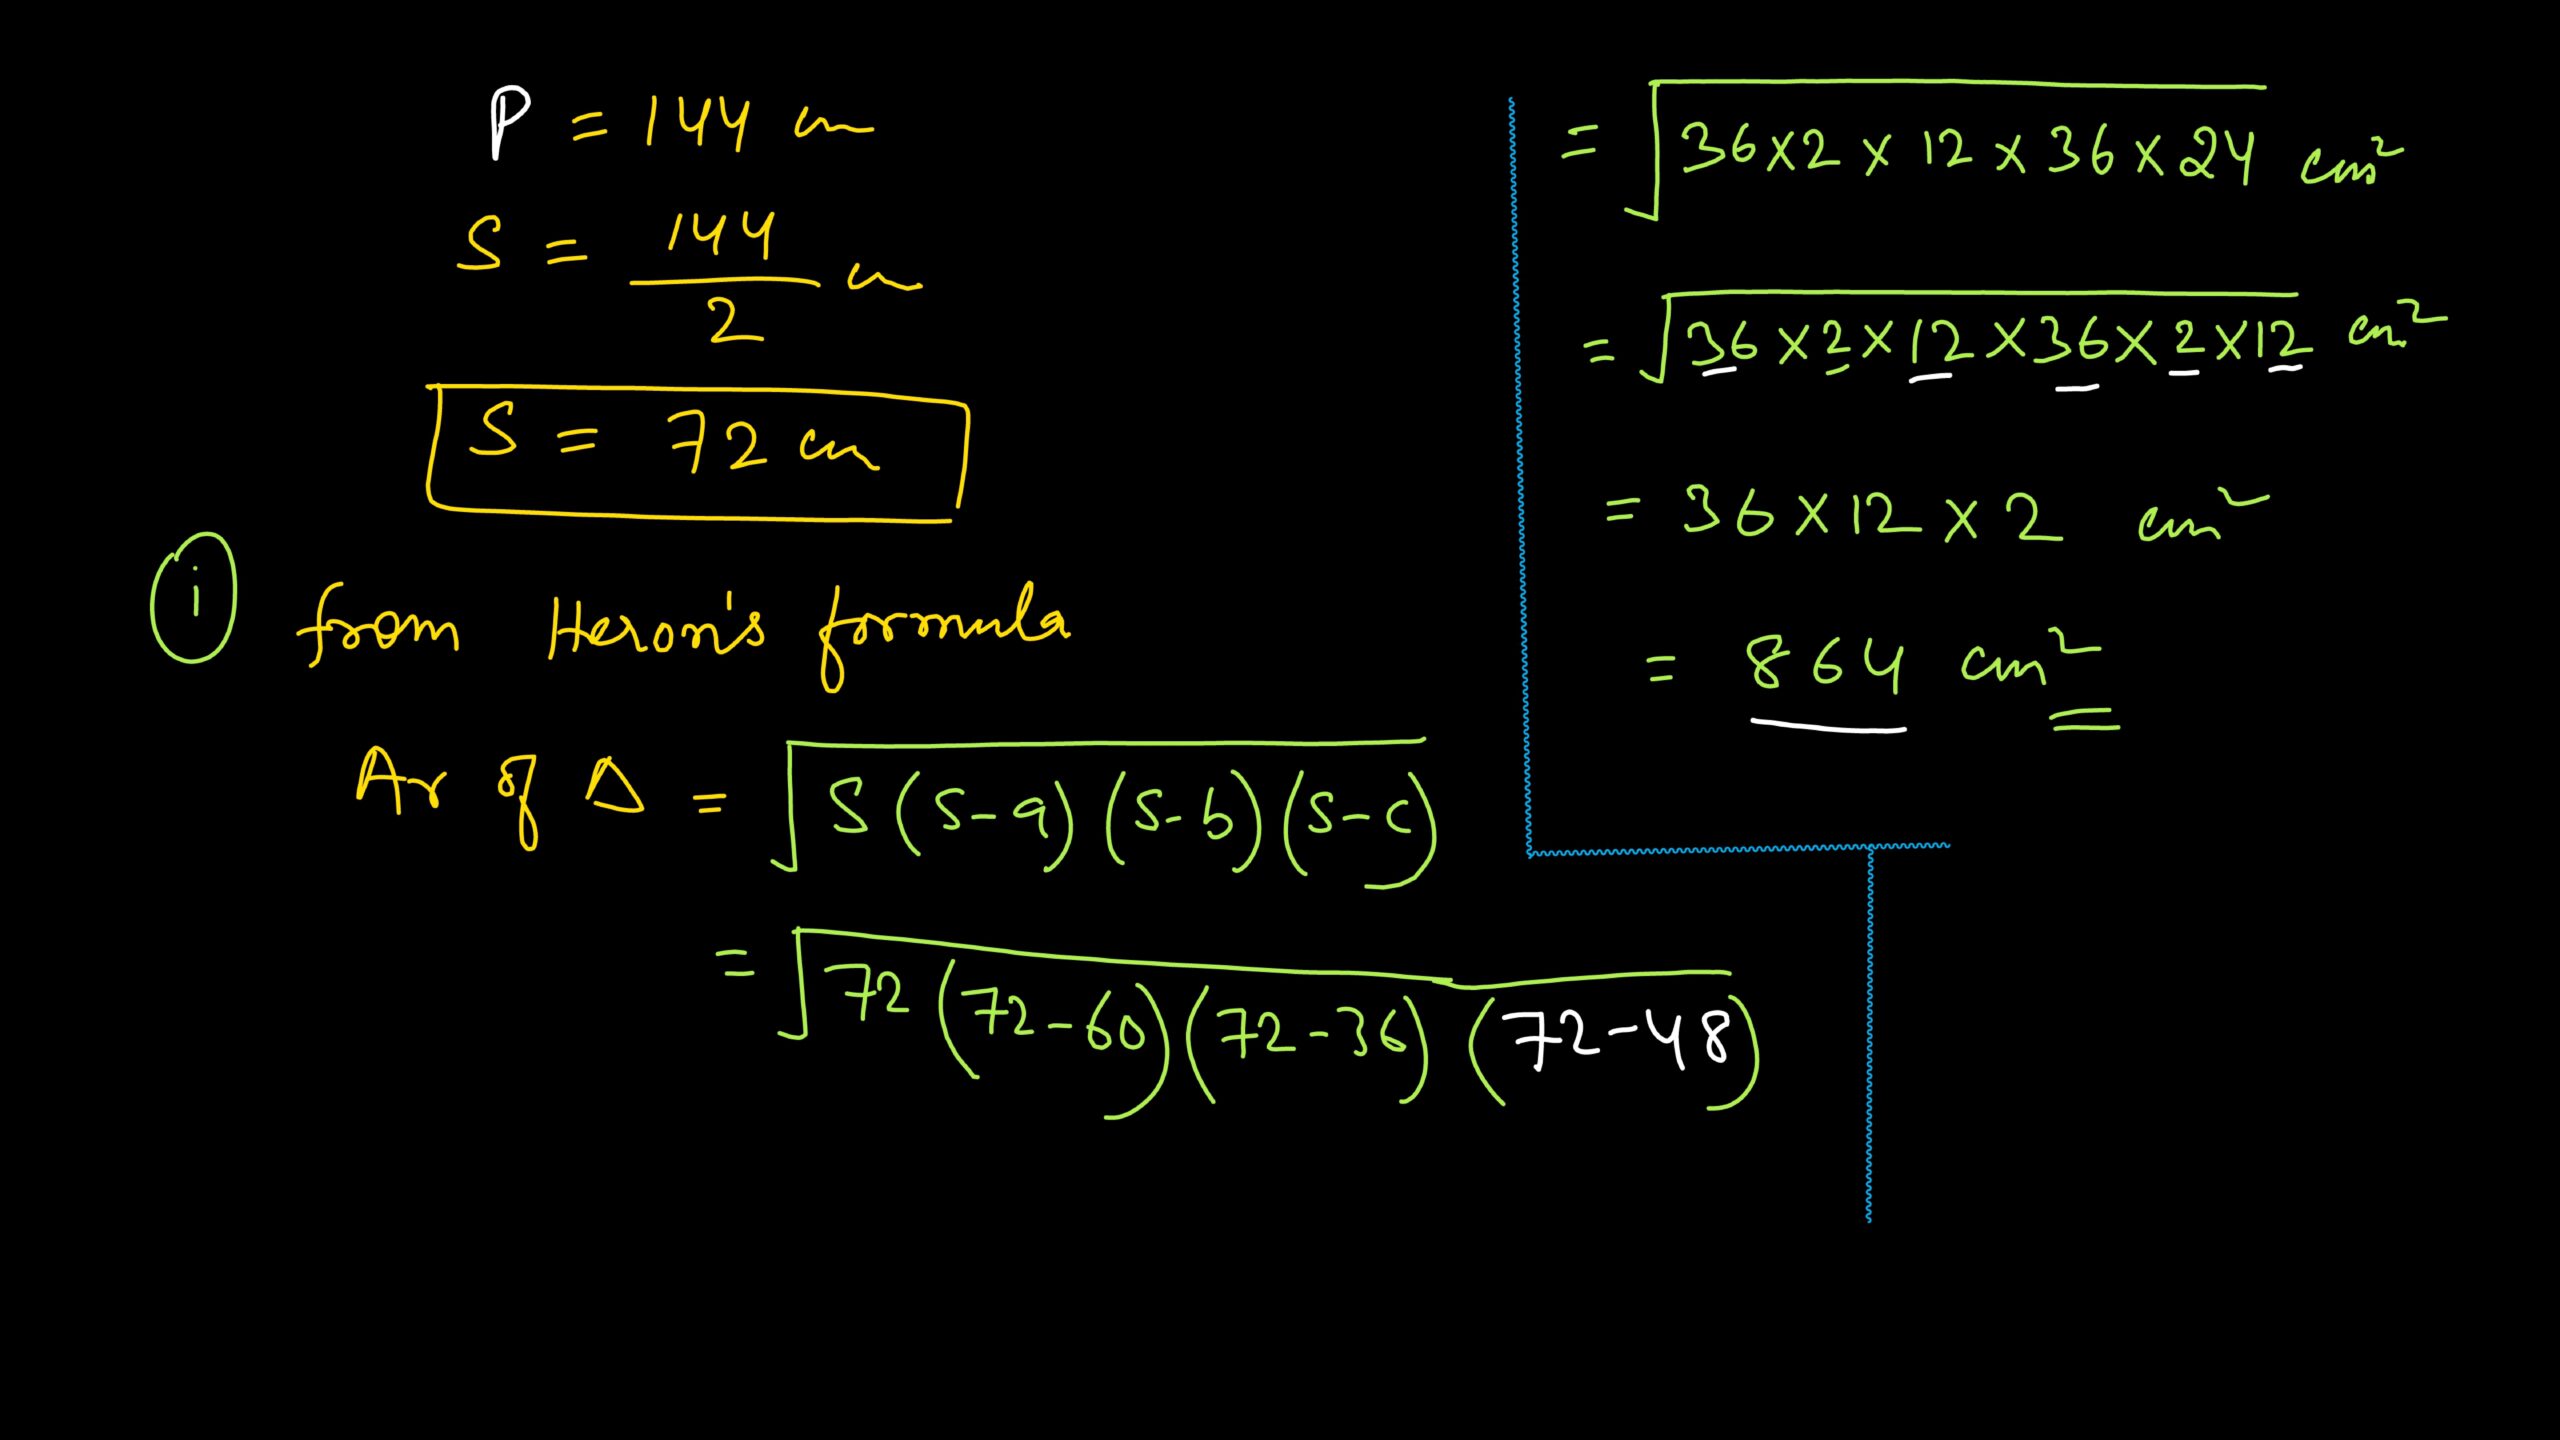 P = 144 cm
S = 144/2 cm
S = 72 cm
i from Heron's formula
Ar of Δ = √S(S-a)(S-b)(S-c)
= √72(72-60)(72-36)(72-48)
= √36×2×12×36×24 cm²
= √36×2×12×36×2×12 cm²
= 36×12×2 cm²
= 864 cm²